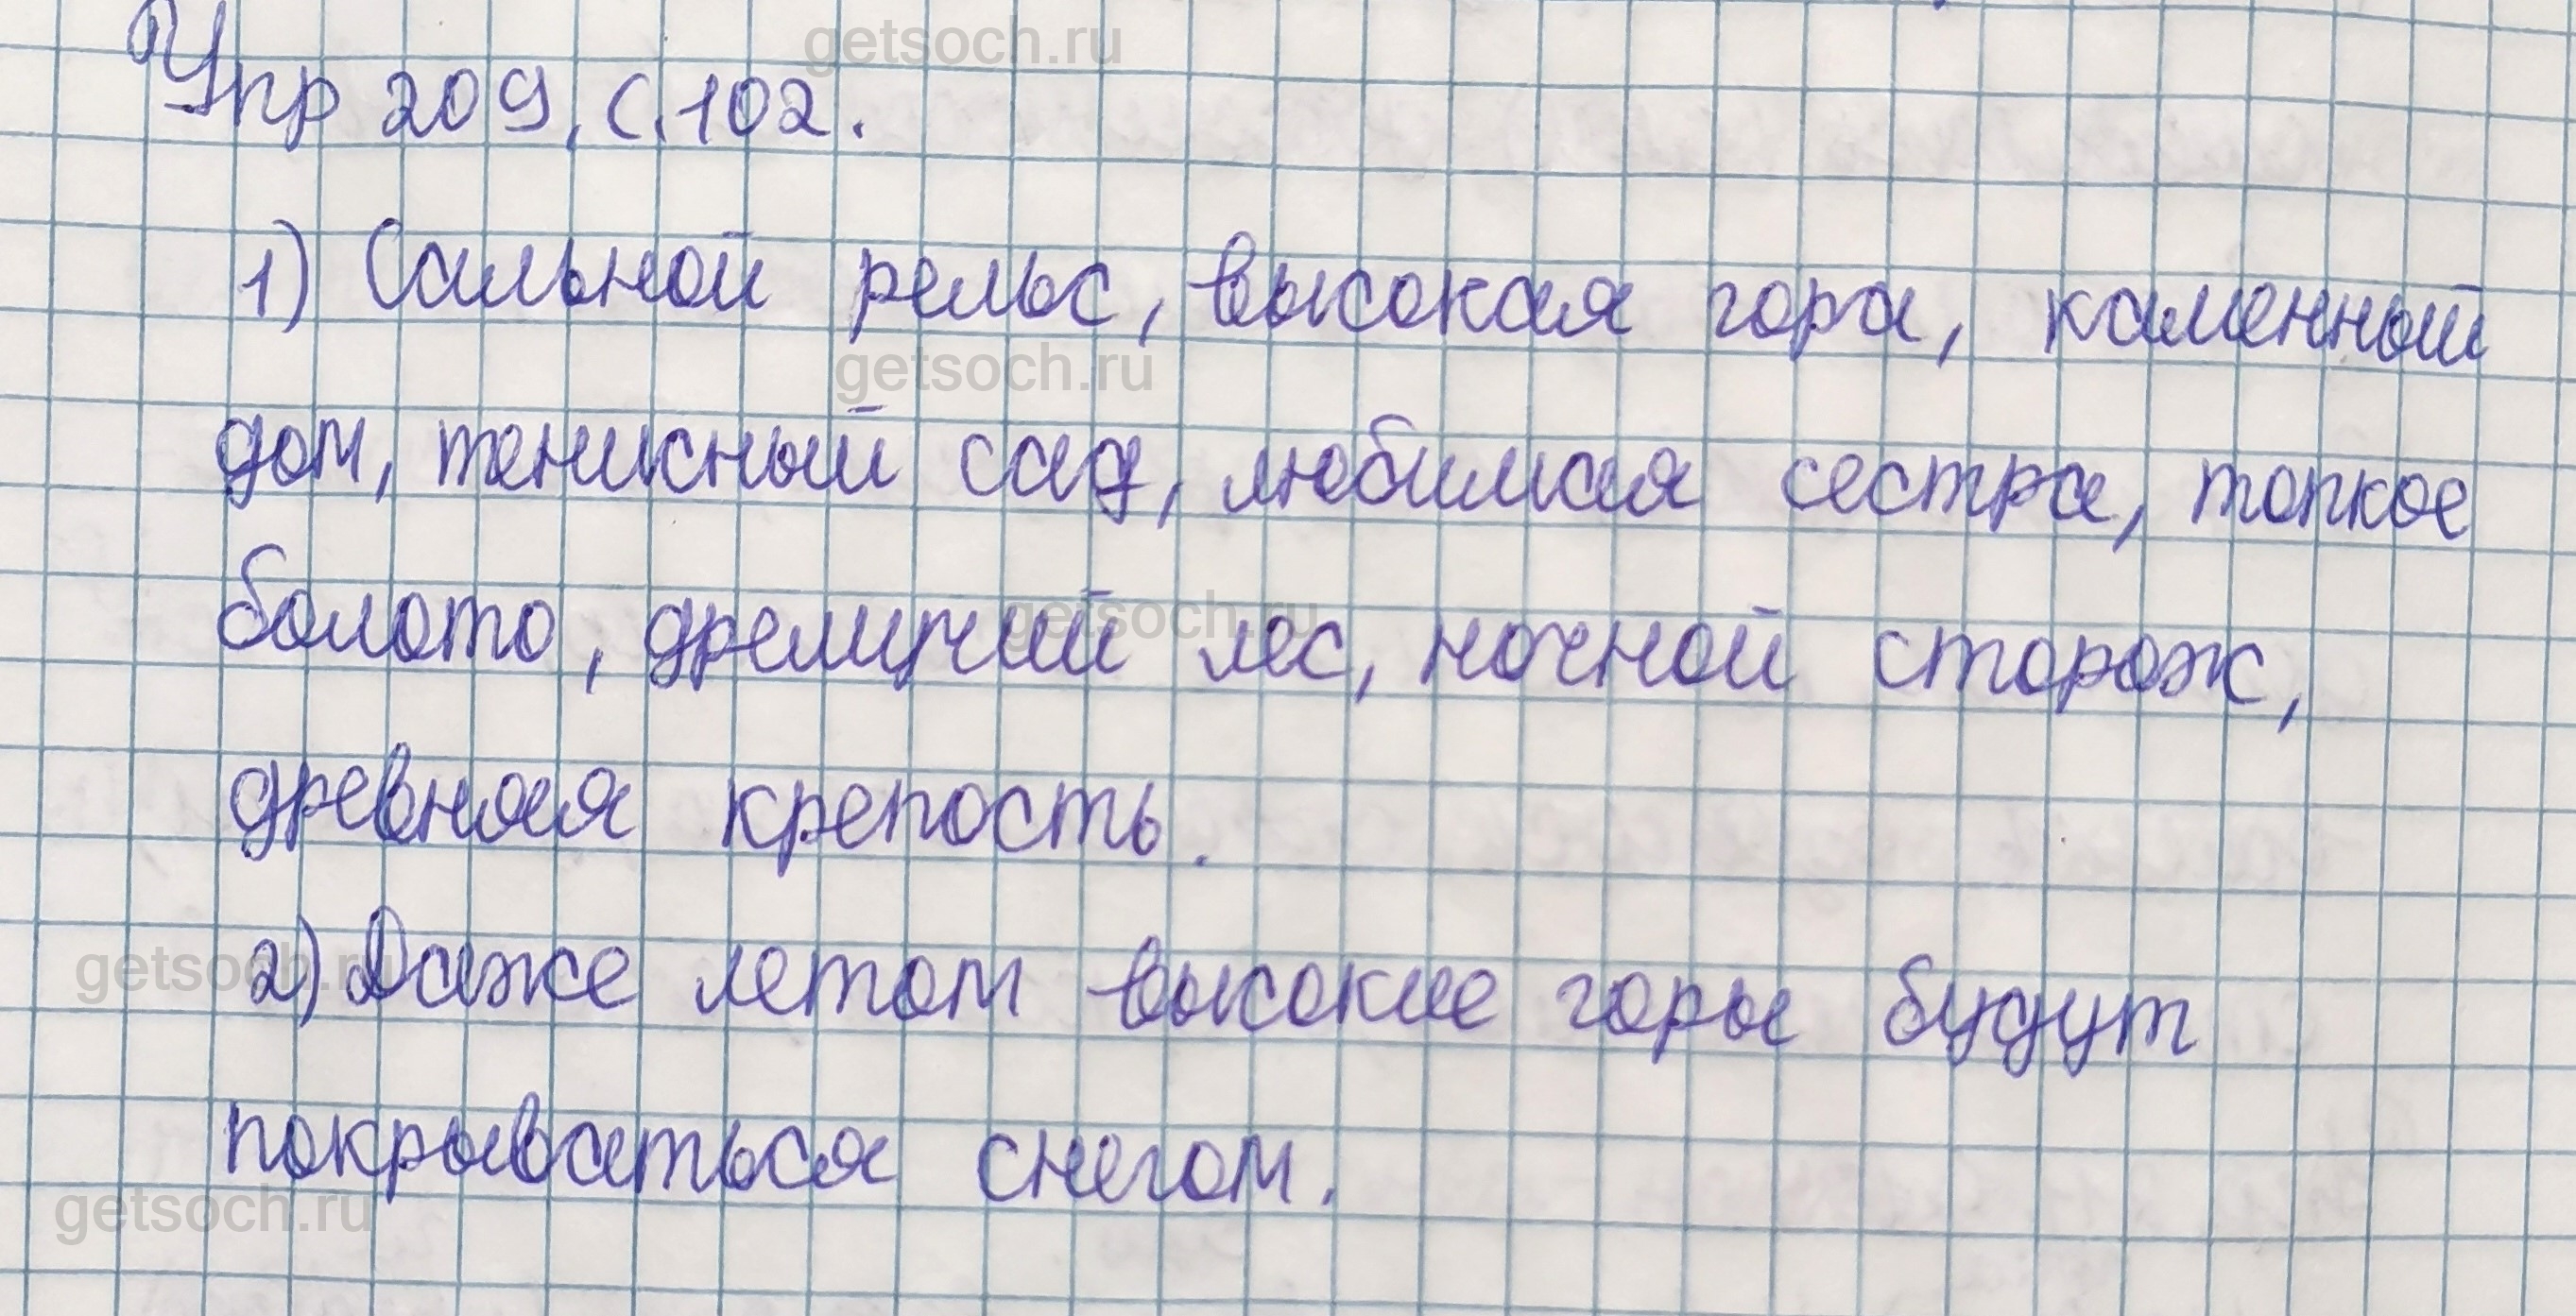 getsoch.ru
Упр 209, с. 102.
1) Сальной рельс, высокая гора, каменный
getsoch.ru
дом, тенисный сад, любимая сестра, топкое
getsoch.ru
болото, дремучий лес, ночной сторож,
древняя крепость.
getsoch.ru
2) Даже летом высокие горы будут
покрываться снегом.
getsoch.ru